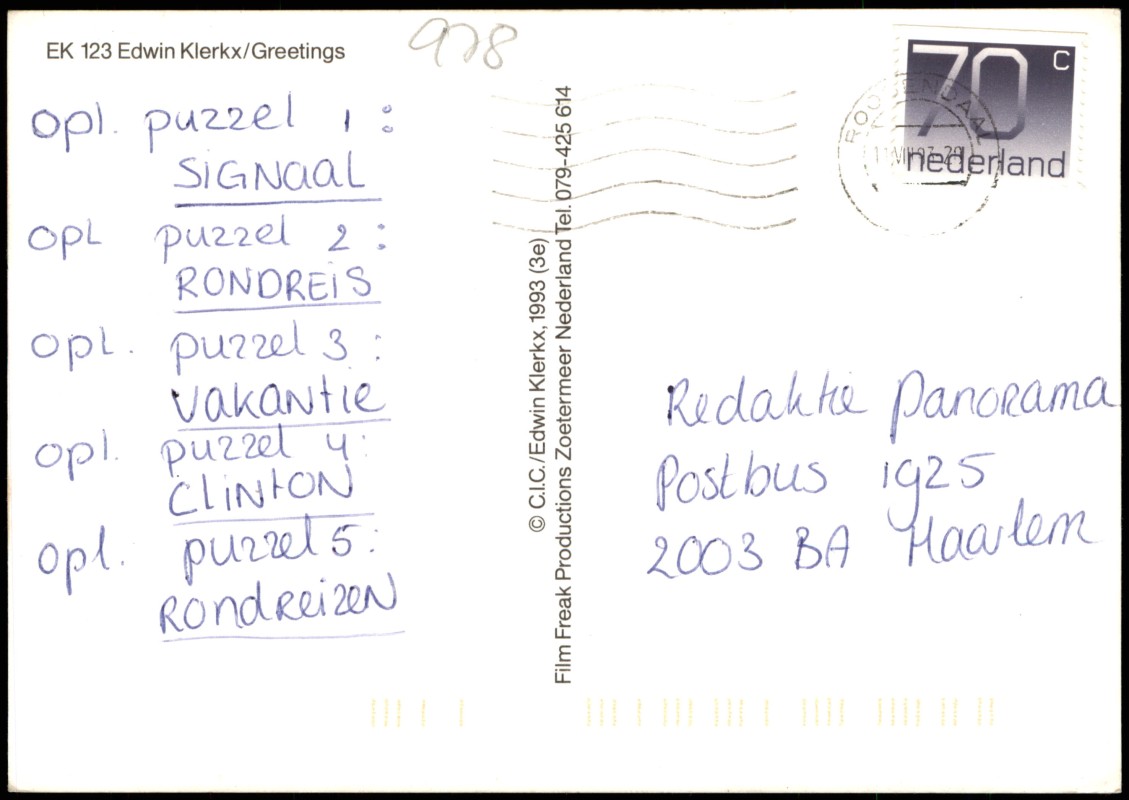 EK 123 Edwin Klerkx/Greetings
978
opl. puzzel 1:
SIGNAAL
opl puzzel 2:
RONDREIS
opl. puzzel 3:
VAKANTIE
opl. puzzel 4:
CLINTON
opl. puzzel 5:
RONDREIZEN
© C.I.C./Edwin Klerkx, 1993 (3e)
Film Freak Productions Zoetermeer Nederland Tel. 079-425 614
70 c
nederland
ROOSENDAAL
Redaktie Panorama
Postbus 1925
2003 BA Haarlem